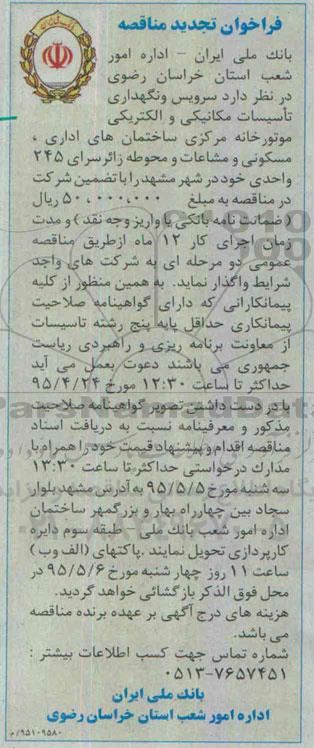 فراخوان تجدید مناقصه
بانك ملی ایران – اداره امور
شعب استان خراسان رضوی
در نظر دارد سرویس ونگهداری
تأسیسات مکانیکی و الکتریکی
موتورخانه مرکزی ساختمان های اداری ،
مسکونی و مشاعات و محوطه زائرسرای ۲۴۵
واحدی خود در شهر مشهد را با تضمین شرکت
در مناقصه به مبلغ ۵۰،۰۰۰،۰۰۰ ریال
( ضمانت نامه بانکی یا واریز وجه نقد ) و مدت
زمان اجرای کار ۱۲ ماه ازطریق مناقصه
عمومی دو مرحله ای به شرکت های واجد
شرایط واگذار نماید. به همین منظور از کلیه
پیمانکارانی که دارای گواهینامه صلاحیت
پیمانکاری حداقل پایه پنج رشته تاسیسات
از معاونت برنامه ریزی و راهبردی ریاست
جمهوری می باشند دعوت بعمل می آید
حداکثر تا ساعت ۱۲:۳۰ مورخ ۹۵/۴/۲۴
با در دست داشتن تصویر گواهینامه صلاحیت
مذکور و معرفینامه نسبت به دریافت اسناد
مناقصه اقدام و پیشنهاد قیمت خود را همراه با
مدارك درخواستی حداکثر تا ساعت ۱۳:۳۰
سه شنبه مورخ ۹۵/۵/۵ به آدرس مشهد بلوار
سجاد بین چهارراه بهار و بزرگمهر ساختمان
اداره امور شعب بانك ملی – طبقه سوم دایره
کارپردازی تحویل نمایند .پاکتهای (الف وب )
ساعت ۱۱ روز چهار شنبه مورخ ۹۵/۵/۶ در
محل فوق الذکر بازگشائی خواهد گردید.
هزینه های درج آگهی بر عهده برنده مناقصه
می باشد.
شماره تماس جهت کسب اطلاعات بیشتر :
۰۵۱۳-۷۶۵۷۴۵۱
بانك ملی ایران
اداره امور شعب استان خراسان رضوی
۹۵۱۰۹۵۸۰/م